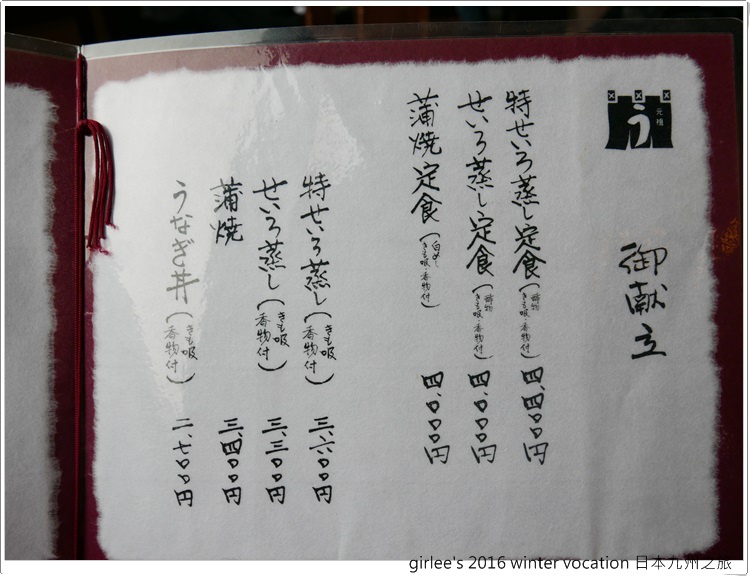 う
元祖
御献立
特せいろ蒸し定食(酢物 きも吸・香物付) 四、四〇〇円
せいろ蒸し定食(酢物 きも吸・香物付) 四、〇〇〇円
蒲焼定食(白めし きも吸・香物付) 四、〇〇〇円
特せいろ蒸し(きも吸 香物付) 三、六〇〇円
せいろ蒸し(きも吸 香物付) 三、三〇〇円
蒲焼 三、四〇〇円
うなぎ丼(きも吸 香物付) 二、七〇〇円
girlee's 2016 winter vocation 日本九州之旅